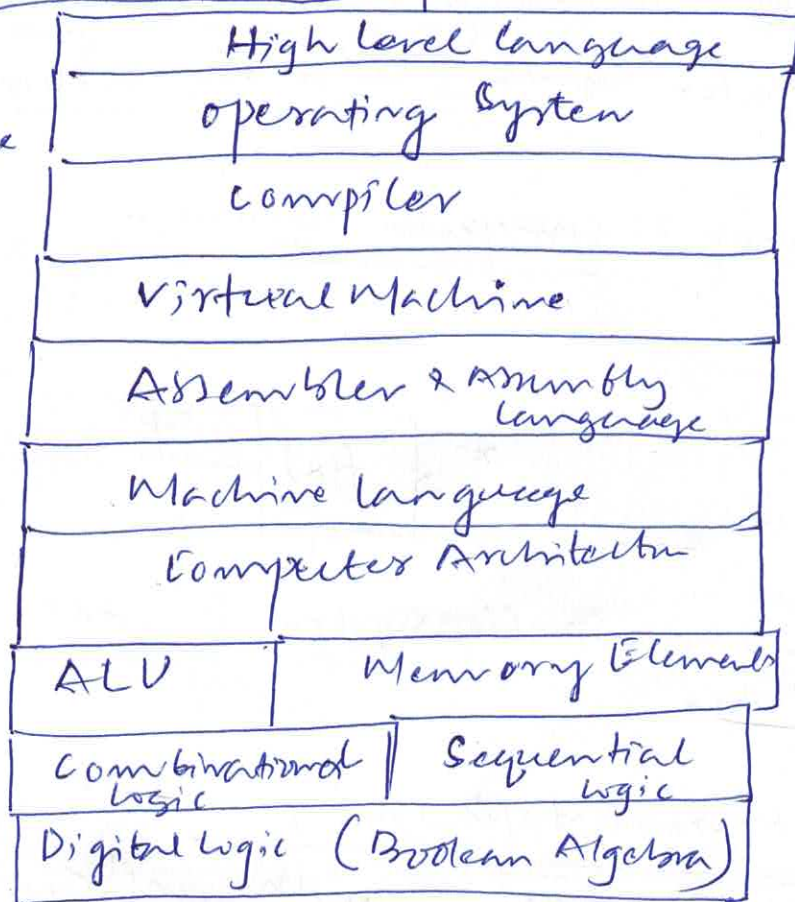 High Level Language
e
Operating System
Compiler
Virtual Machine
Assembler & Assembly
Language
Machine Language
Computer Architectu
ALU
Memory Elements
Combinational
Logic
Sequential
Logic
Digital Logic (Boolean Algebra)